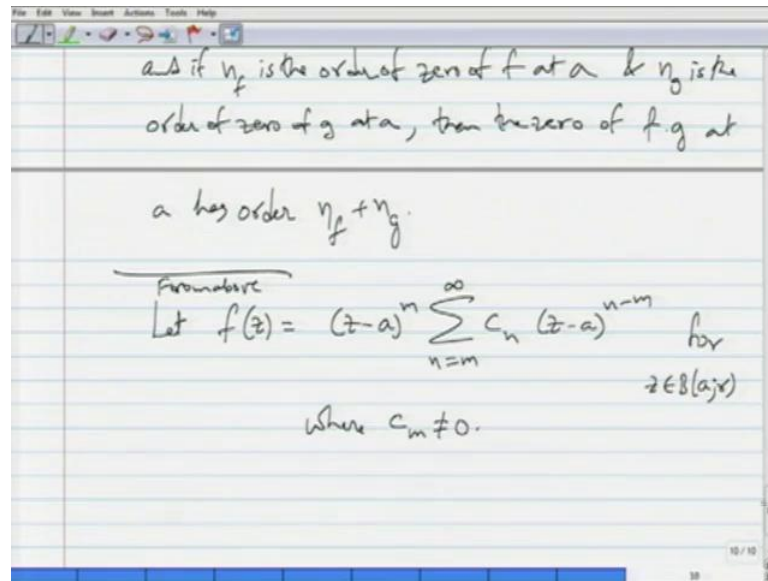 File Edit View Insert Actions Tools Help
and if η_f is the order of zero of f at a & η_g is the
order of zero of g at a, then the zero of f.g at
a has order η_f + η_g.
From above
Let f(z) = (z-a)^m ∑_{n=m}^{∞} c_n (z-a)^{n-m} for
z∈B(a;r)
where c_m ≠ 0.
10 / 10
10